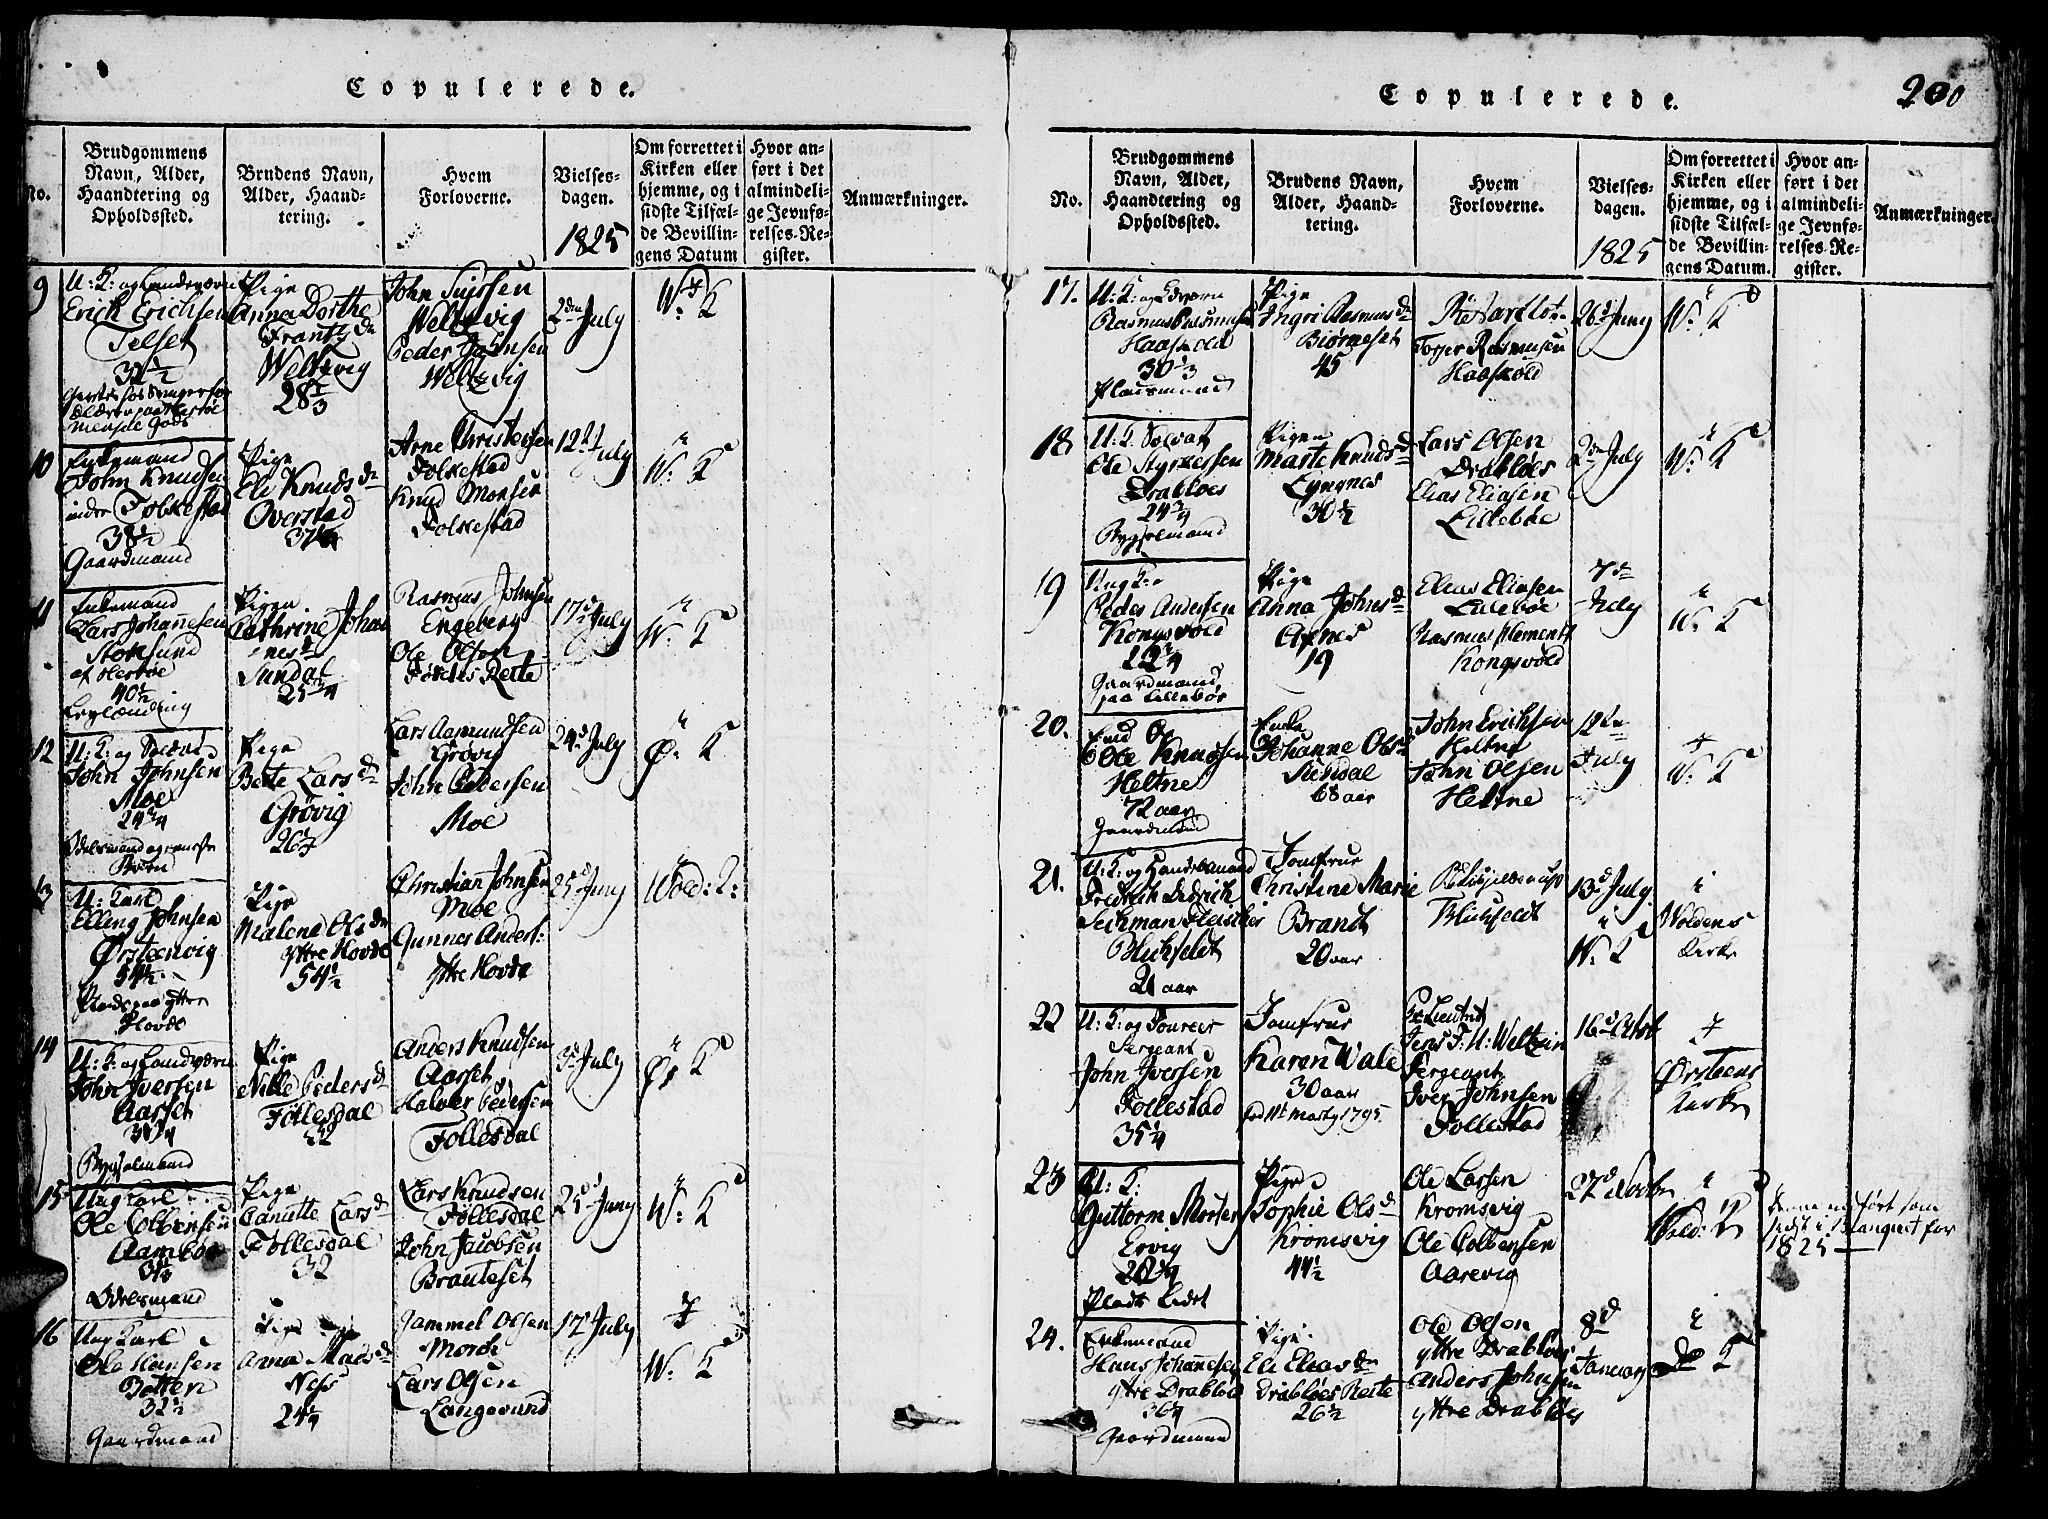 Copulerede.
No.
Brudgommens
Navn, Alder,
Haandtering og
Opholdssted.
Brudens Navn,
Alder, Haand-
tering.
Hvem
Forloverne.
Vielses-
dagen.
1825
Om forrettet i
Kirken eller
hjemme, og i
sidste Tilfæl-
de Bevillin-
gens Datum
Hvor an-
ført i det
almindeli-
ge Jevnfø-
relses-Re-
gister.
Anmærkninger.
9
U: K: og Landeværn
Erich Erichsen
Telset
32½
Pige
Anna Dorthe
Frantz dr
Weltzvig
28⅓
John
Weltzvig
Peder Johnsen
Weltzvig
2den July
W: K
10
Enkemand
John Knudsen
indre Folkestad
38½
Gaardmand
Pige
Eli Knuds dr
Overstad
37¼
Arne Christensen
Folkestad
Knud Monsen
Folkestad
12te July
W: K
11
Enkemand
Lars Johannesen
Stoksund
40½
Pigen
Cathrine Johan
nes dr
Sundal
25¾
Rasmus Johnsen
Engeberg
Ole Olsen
Førdes Rette
17d July
W: K
12
U: K: og Soldat
John Johnsen
Moe
24¾
Pige
Berte Lars dr
Grøvig
26⅓
Lars Aamundsen
Grøvig
John Pedersen
Moe
24d July
Ø: K
13
U: Karl
Elling Johnsen
Ørsteenvig
54½
Plads paa ytter
Hovde
Pige
Malena Ols dr
Yttre Hovde
54½
Christian Johnsen
Moe
Gunner Anders:
Yttre Hovde
25d Juny
Wold: K:
14
U: K: og Landværn
John Iversen
Aarset
Bygselmand
Pige
Nille Peders dr
Follesdal
32
Anders Knudsen
Aarset
Halver Pedersen
Follesdal
3d July
Ø: K
15
Ung Karl
Ole Colbensen
Aambøe
Odelsmand
Pige
Canutte Lars dr
Follesdal
32
Lars Knudsen
Follesdal
John Jacobsen
Brauteset
25d Juny
W: K
16
Ung Karl
Ole Hansen
Botten
32½
Gaardmand
Pige
Anna Mads dr
Ness
24¼
Gammel Olsen
Morch
Lars Olsen
Langesund
17d July
W: K
Copulerede.
200
No.
Brudgommens
Navn, Alder,
Haandtering og
Opholdssted.
Brudens Navn,
Alder, Haand-
tering.
Hvem
Forloverne.
Vielses-
dagen.
1825
Om forrettet i
Kirken eller
hjemme, og i
sidste Tilfæl-
de Bevillin-
gens Datum.
Hvor an-
ført i det
almindeli-
ge Jevnfø-
relses-Re-
gister.
Anmærkninger.
17.
Rasmus Rasmusen
Haaskold
30⅓
Pladsmand
Pige
Ingri Rasmus dr
Biørneset
45
Torger Rasmusen
Haaskold
26d Juny
W: K
18
U: K Soldat
Ole Styrkersen
Drabløes
24¾
Bygselmand
Pigen
Marte Knuds dr
Lyngnes
30½
Lars Olsen
Drabløes
Elias Eliasen
Lillebøe
2den July
W: K
19
Ung K:
Peder Andersen
Kongsvold
22¾
Gaardmand
paa Lillebøe
Pige
Anna Johns dr
Axnes
19
Elias Eliasen
Lillebøe
Rasmus Klement
Kongsvold
7de
July
W: K
20.
Ole Knudsen
Heltne
72 aar
Gaardmand
Enke
Johanne Ols dr
68 aar
John Erichsen
Heltne
John Olsen
Heltne
12te
July
W: K
21.
U: K: og Handelsmand
Fredrik Didrich
Blichfeldt
21 aar
Jomfrue
Christine Marie
Brandt
20 aar
Blichfeldt
13d July
W: K
i
Woldens
Kirke
22
U: K: og Foureer
Sergeant
John Iversen
Follestad
35¼
Jomfrue
Karen Wale
30 aar
Pr Lieutnt
Jens F: U: Weltzin
Sergeant
Iver Johnsen
Follestad
16d Octobr
Ørsteens
Kirke
23
U: K:
Guttorm Morten
Ervig
20¾
Plads Ledet
Pige
Sophie Ols dr
Kromsvig
44½
Ole Larsen
Kromsvig
Ole Colbensen
Aarevig
27d Novbr
Wold: K
Denne indført som
sidst i Blanquet for
1825
24.
Enkemand
Hans Johannesen
yttre Drabløs
36¼
Gaardmand
Pige
Eli Elias dr
Drabløes Rette
26½
Ole Olsen
yttre Drabløes
Anders Johnsen
yttre Drabløes
8d
January
K